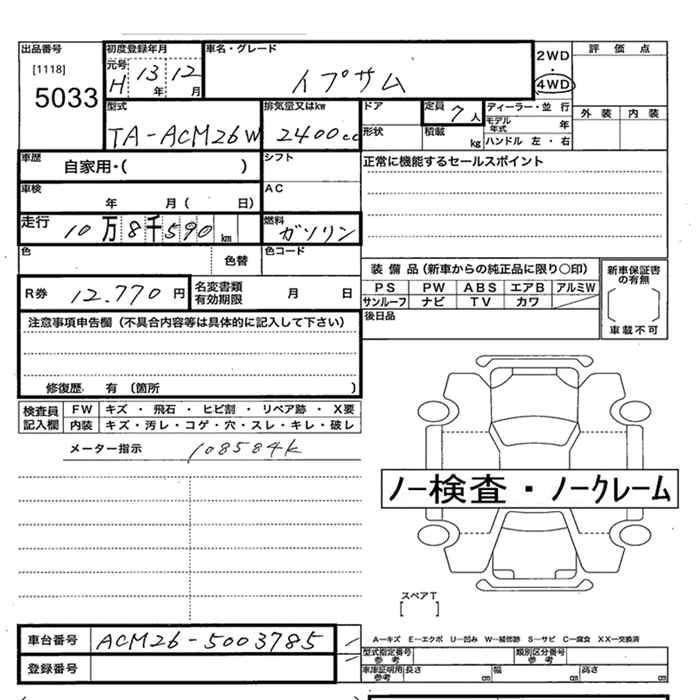 出品番号 初度登録年月 車名・グレード 2WD 評価点
[1118] 元号 H 13年 12月 イプサム ・
5033 4WD
型式 排気量又はkw ドア 定員 7人 ディーラー・並行 外装 内装
TA-ACM26W 2400cc 形状 積載 kg モデル年式 年
ハンドル 左・右
車歴 自家用・( ) シフト 正常に機能するセールスポイント
車検 年 月( 日) AC
走行 10万8千590km 燃料 ガソリン
色 色替 色コード
装備品(新車からの純正品に限り○印) 新車保証書の有無
R券 12.770円 名変書類有効期限 月 日 PS PW ABS エアB アルミW
サンルーフ ナビ TV カワ 車載不可
注意事項申告欄(不具合内容等は具体的に記入して下さい) 後日品
修復歴 有 (箇所 )
検査員記入欄 FW キズ・飛石・ヒビ割・リペア跡・X要
内装 キズ・汚レ・コゲ・穴・スレ・キレ・破レ
メーター指示 108584k
ノー検査・ノークレーム
スペアT
[ ]
車台番号 ACM26-5003785
A—キズ E—エクボ U—凹み W—補修跡 S—サビ C—腐食 XX—交換済
登録番号 型式指定番号 参考 類別区分番号 参考
車庫証明用 参考 長さ cm 幅 cm 高さ cm